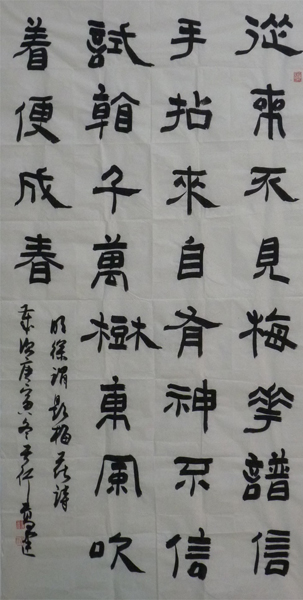 從來不見梅華譜信
手拈來自有神不信
試看千萬樹東風吹
着便成春
明徐渭題梅花詩
歲次庚寅冬